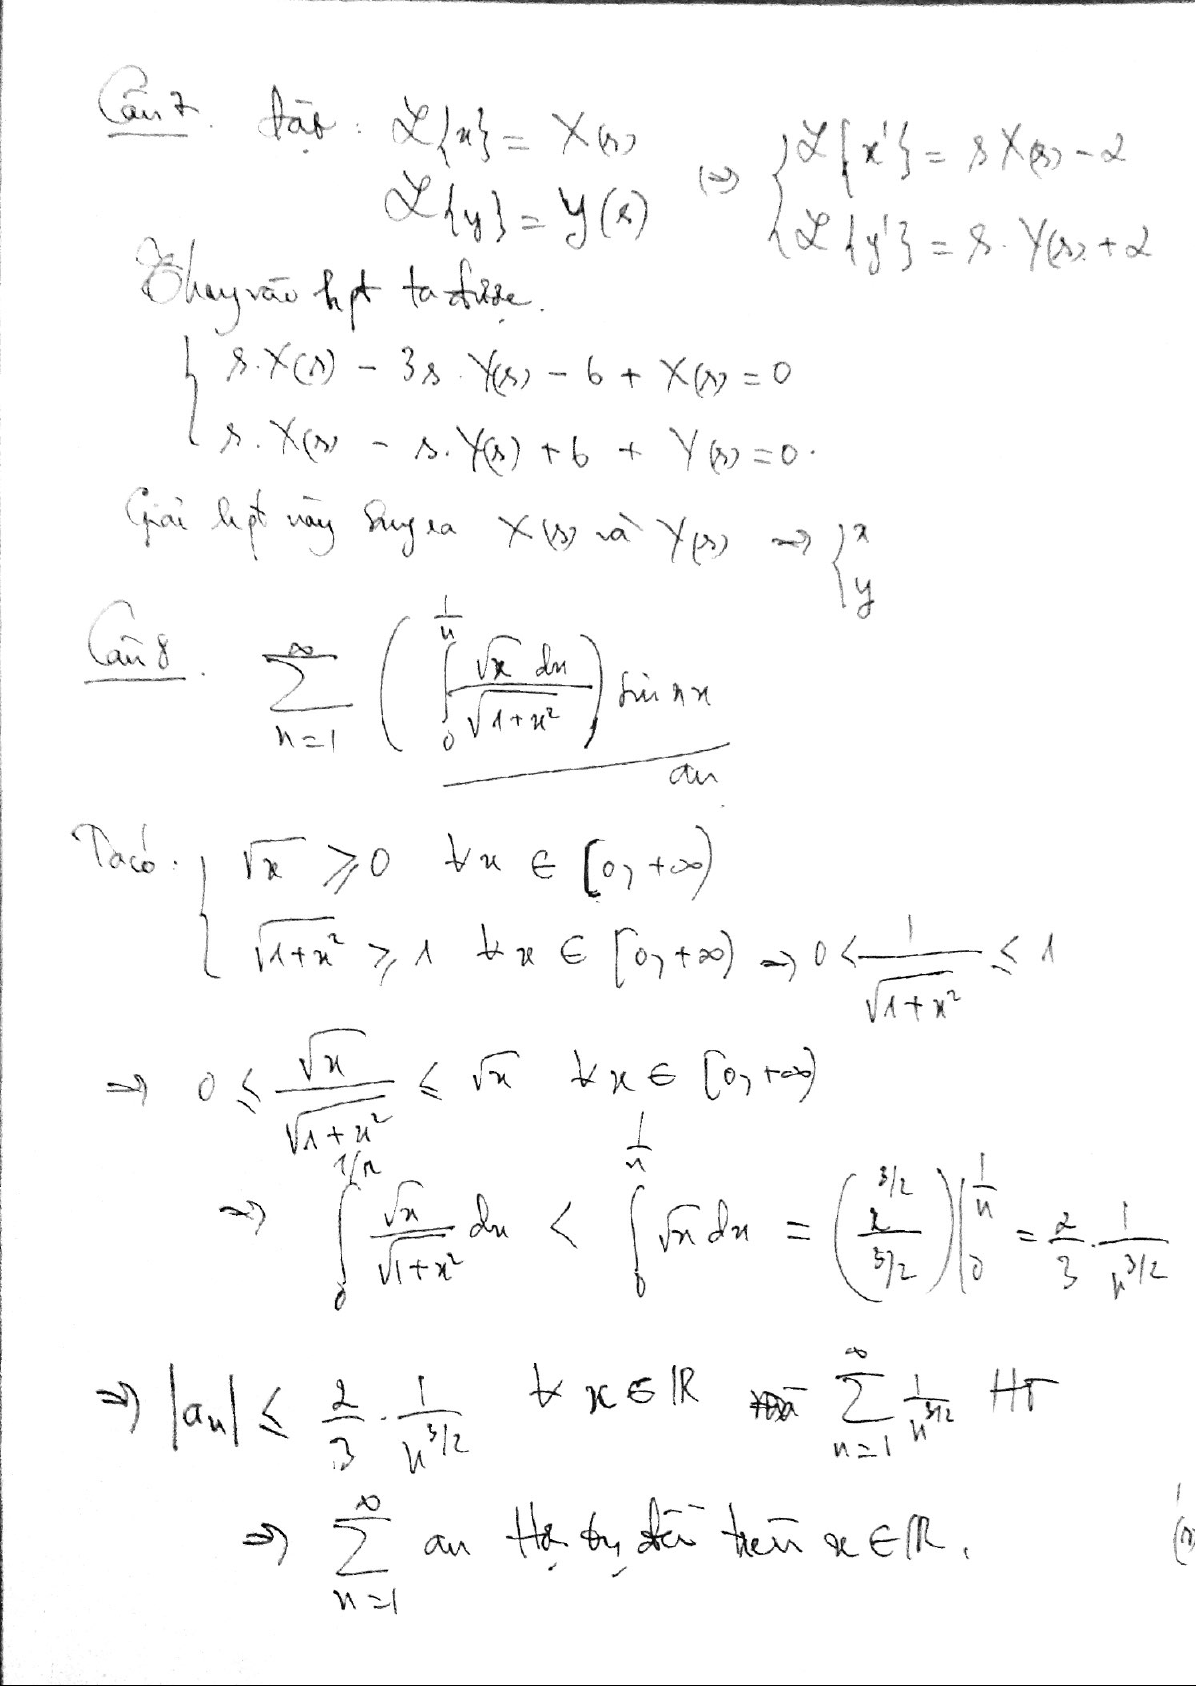 Câu 7. Đặt: ℒ{x} = X(s)
ℒ{y} = Y(s)
(=> { ℒ{x'} = sX(s) - 2
ℒ{y'} = s.Y(s) + 2
Thay vào hpt ta được.
{ s.X(s) - 3s.Y(s) - 6 + X(s) = 0
s.X(s) - s.Y(s) + 6 + Y(s) = 0.
Giải hpt này suy ra X(s) và Y(s) => { x
y
Câu 8. ∑_{n=1}^{∞} ( ∫_0^{1/n} √x dx / √(1+x²) ) sin nx
an
Ta có: { √x ≥ 0 ∀x ∈ [0, +∞)
√(1+x²) ≥ 1 ∀x ∈ [0, +∞) => 0 < 1/√(1+x²) ≤ 1
=> 0 ≤ √x/√(1+x²) ≤ √x ∀x ∈ [0, +∞)
=> ∫_0^{1/n} √x/√(1+x²) dx < ∫_0^{1/n} √x dx = ( x^{3/2} / 3/2 ) |_0^{1/n} = 2/3 . 1/n^{3/2}
=> |an| ≤ 2/3 . 1/n^{3/2} ∀x ∈ ℝ mà ∑_{n=1}^{∞} 1/n^{3/2} HT
=> ∑_{n=1}^{∞} an Hội tụ đều trên x ∈ ℝ.